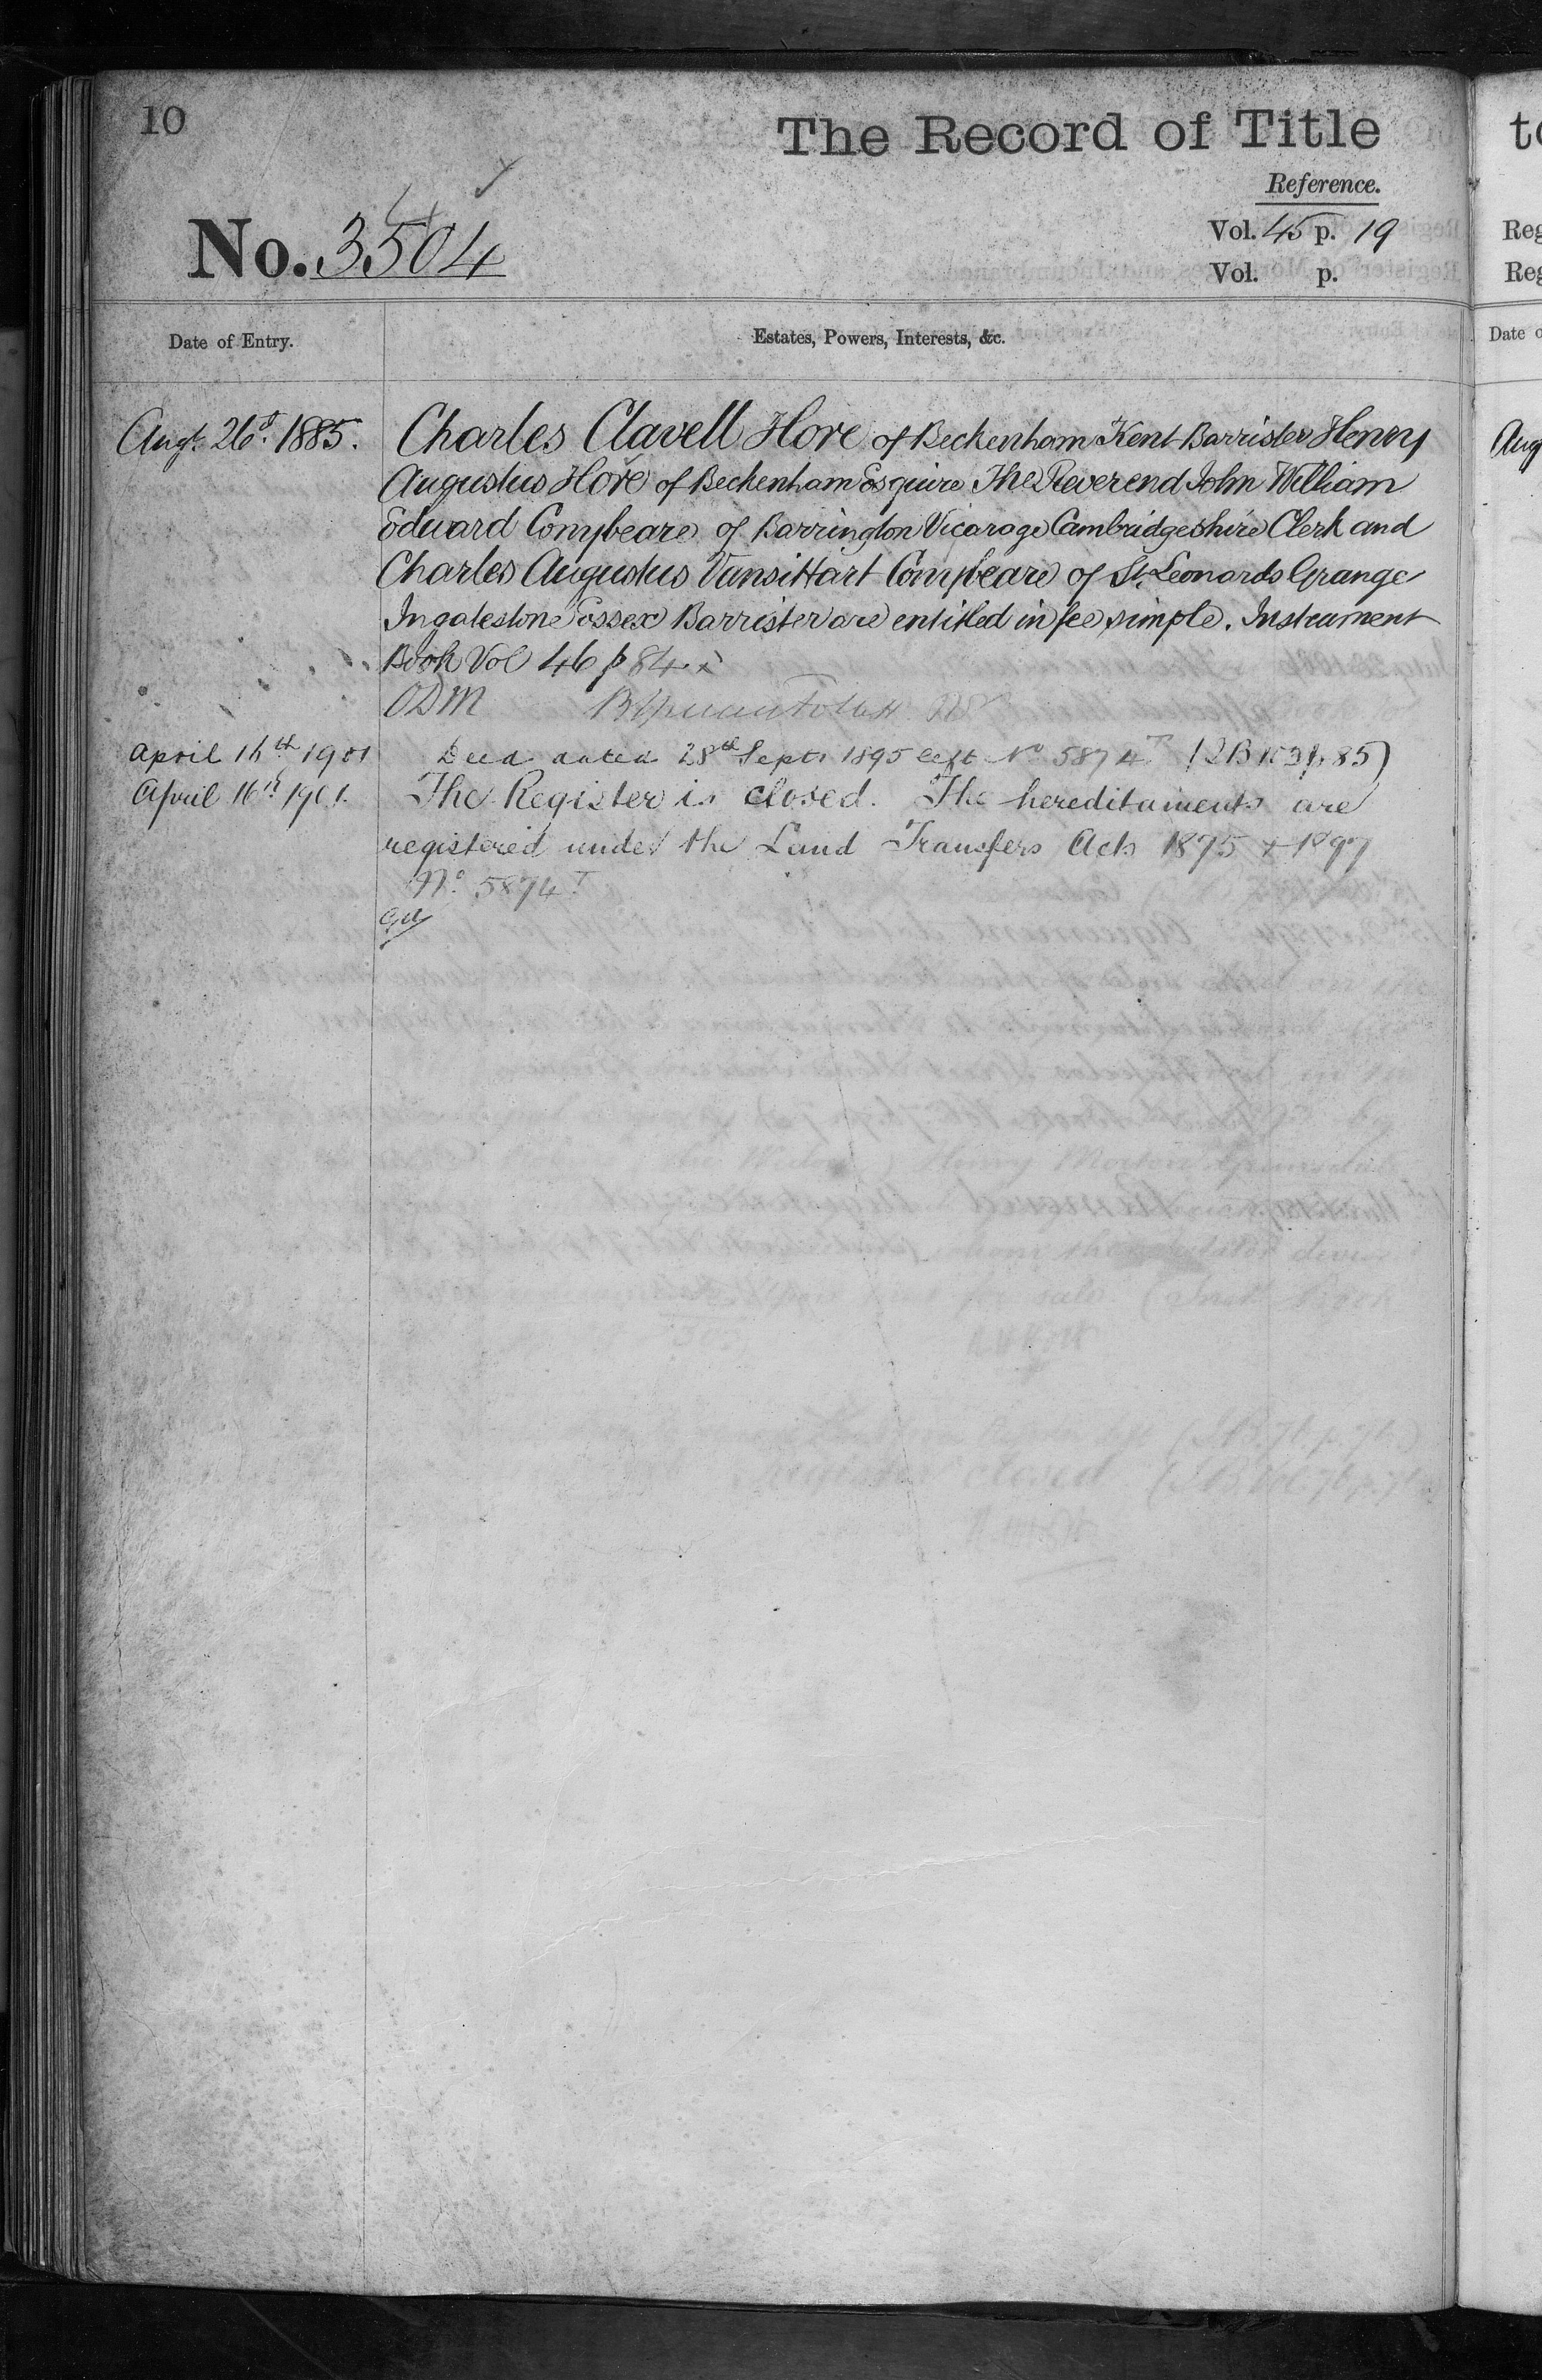 10
The Record of Title
Reference.
No. 3504
Vol. 45 p. 19
Vol. p.
Date of Entry.
Estates, Powers, Interests, &c.
Augt. 26th. 1885.
Charles Clavell Hore of Beckenham Kent Barrister Henry
Augustus Hore of Beckenham Esquire The Reverend John William
Edward Conybeare of Barrington Vicarage Cambridgeshire Clerk and
Charles Augustus Vansittart Conybeare of St. Leonards Grange
Ingatestone Essex Barrister are entitled in fee simple. Instrument
Book Vol 46 p 84
ODM
April 16th 1901
Deed dated 28th Sept. 1895 left No 5874T p. 85)
April 16th 1901.
The Register is closed. The hereditaments are
registered under the Land Transfers Acts 1875 + 1897
No. 5874T
to
Reg
Reg
Date o
Aug